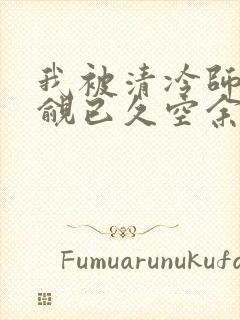 我被清冷师
觎已久空余
Fumuarunukufa